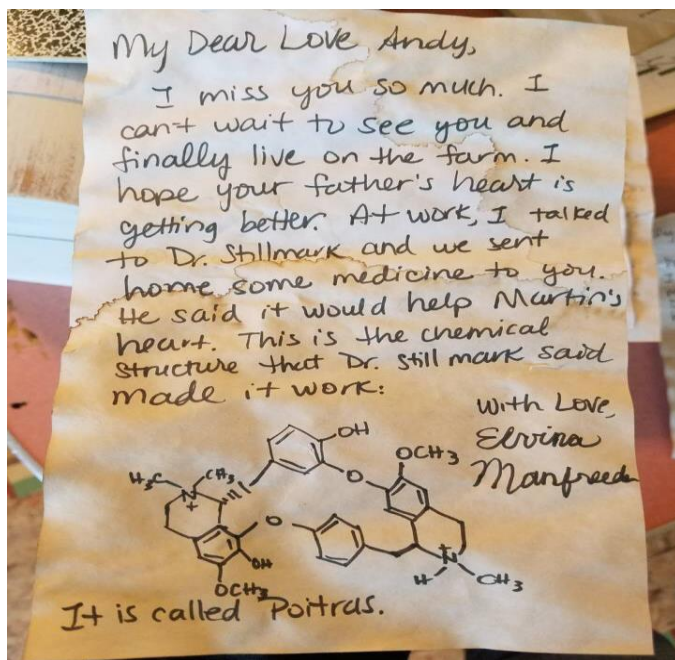 My Dear Love Andy,
I miss you so much. I
can't wait to see you and
finally live on the farm. I
hope your father's heart is
getting better. At work, I talked
to Dr. Stillmark and we sent
home some medicine to you.
He said it would help Martin's
heart. This is the chemical
structure that Dr. Still mark said
made it work:
With Love,
Elvina
Manfreeda
OH
OCH3
O
H3C
CH3
N
+
O
OH
OCH3
+
N
H
CH3
It is called Poitras.